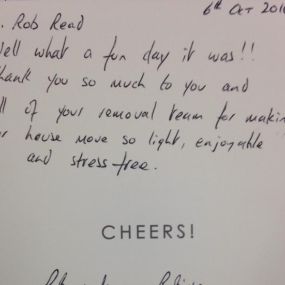 6th Oct 201
. Rob Read
Well what a fun day it was!!
hank you so much to you and
ll of your removal team for makin
r house move so light, enjoyable
and stress-free.
CHEERS!